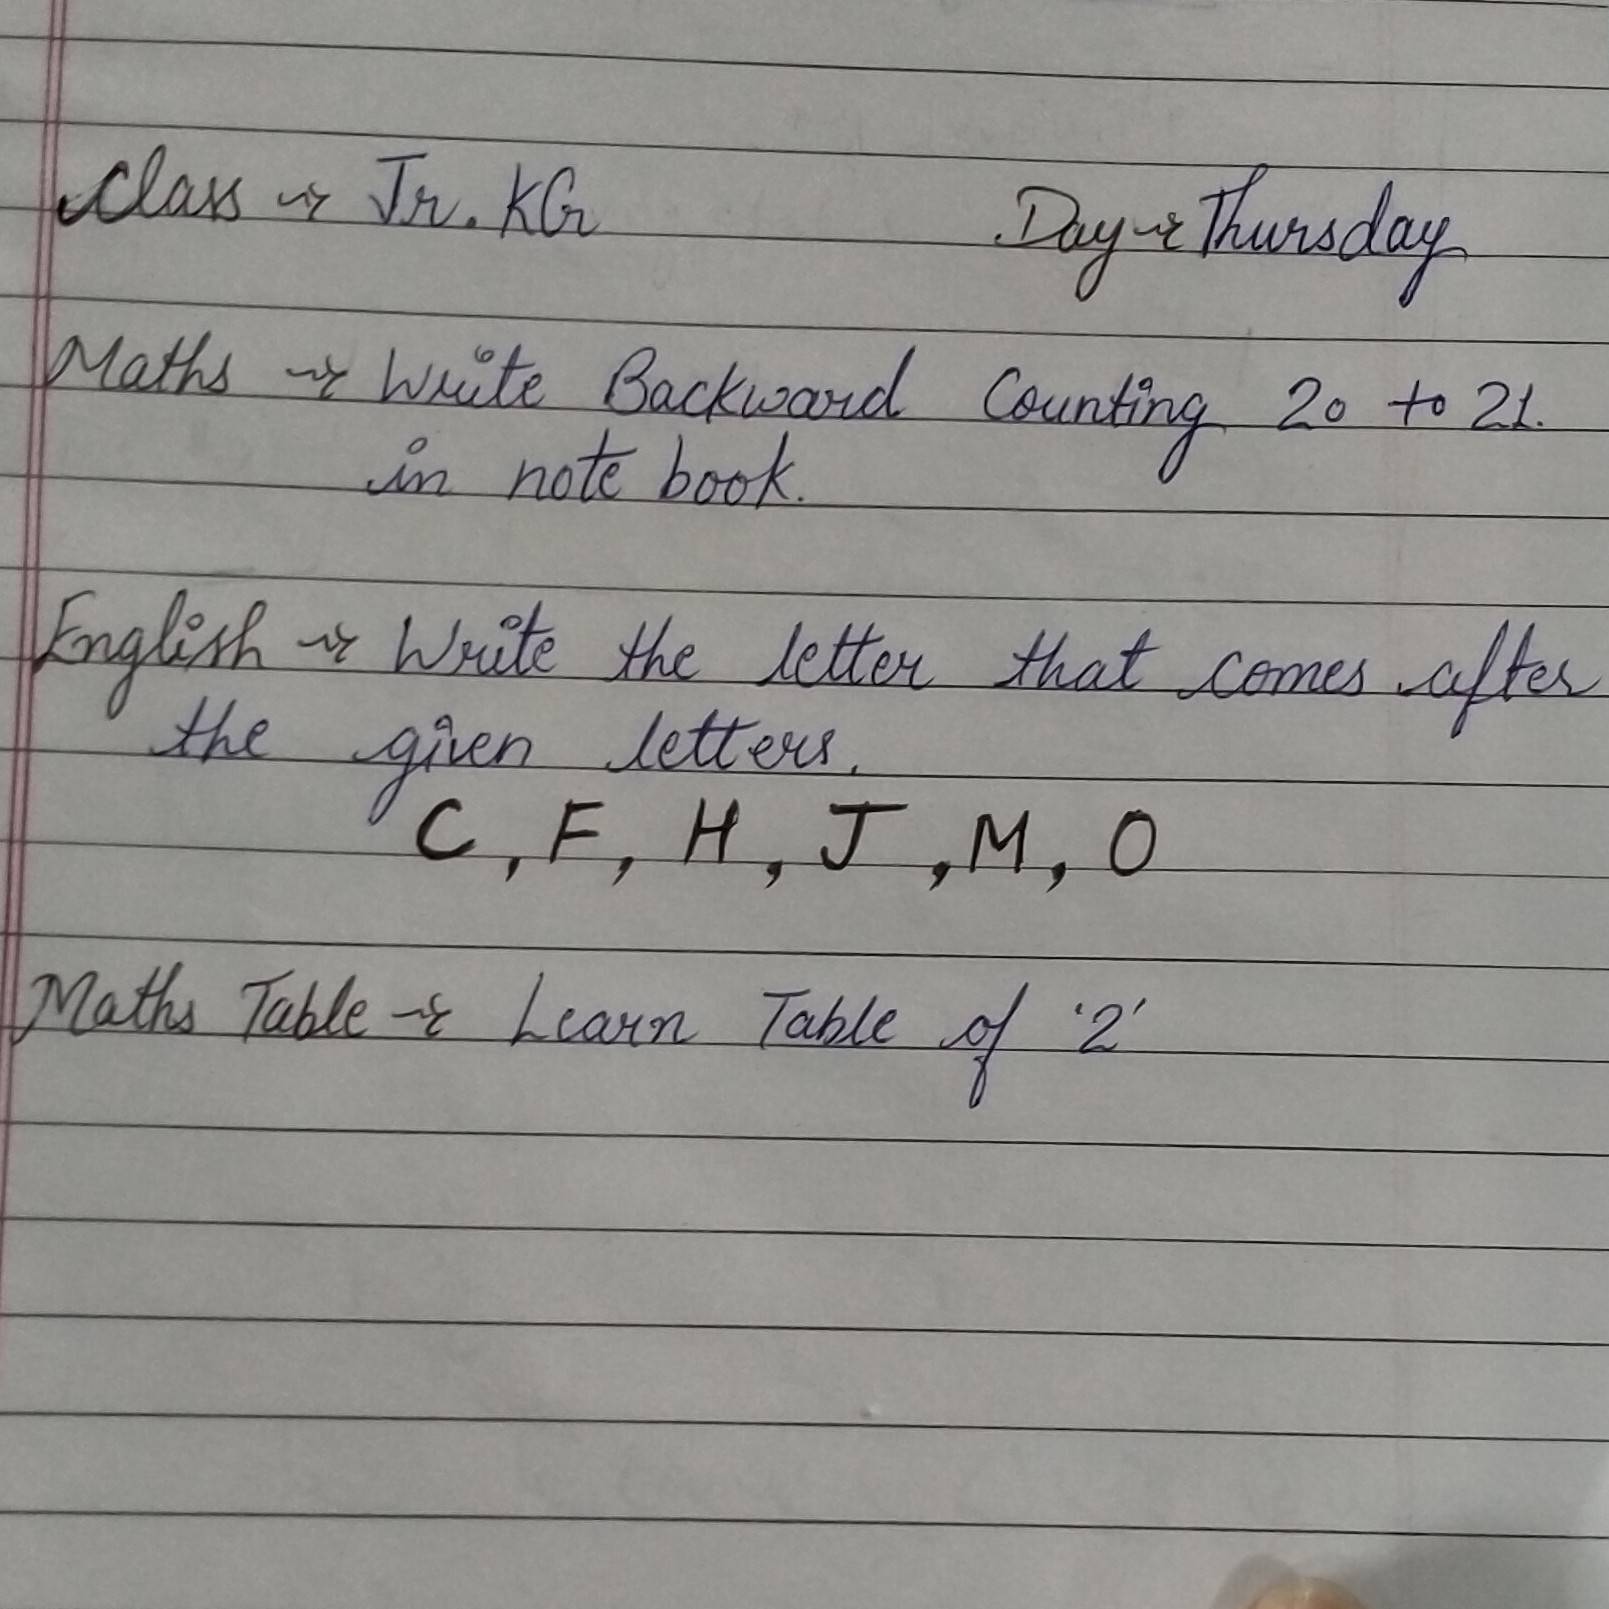 Class → Jr. KG Day → Thursday
Maths → Write Backward Counting 20 to 21.
in note book.
English → Write the letter that comes after
the given letters.
C, F, H, J, M, O
Maths Table → Learn Table of '2'